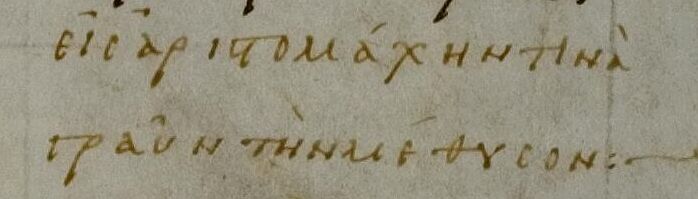 εἰς ἀριστομάχην τινὰ
γραῦν τὴν μέθυσον: